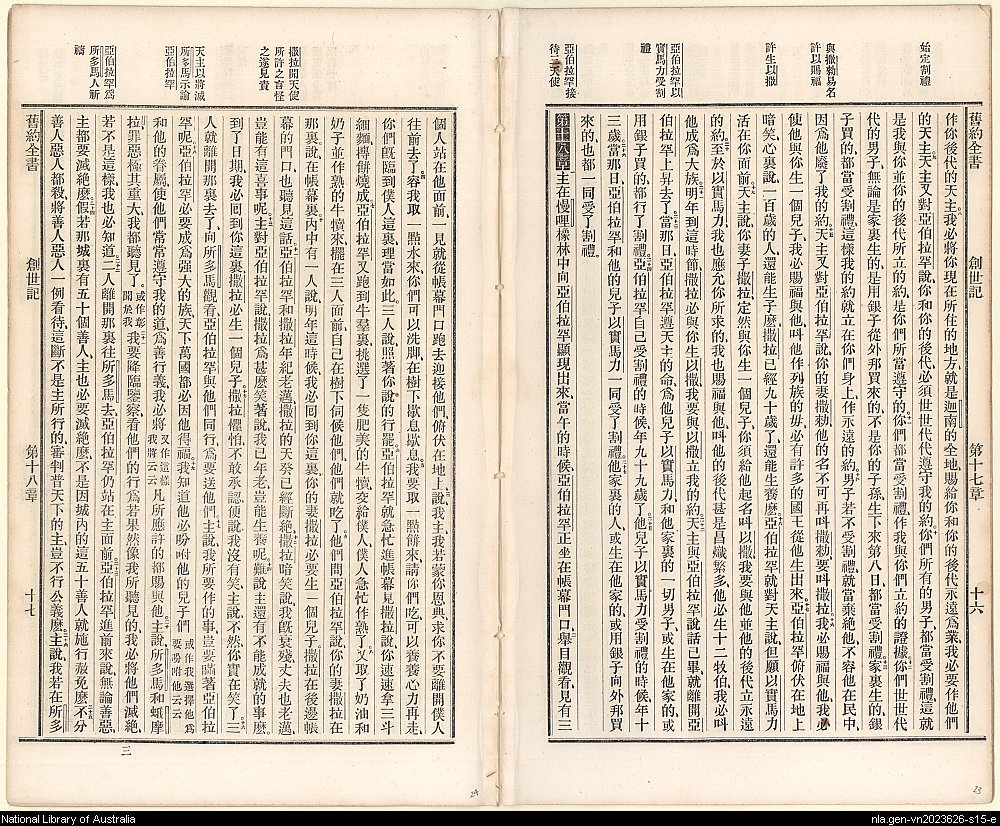 始定割禮
與撒勑易名
許以賜福
許生以撒
亞伯拉罕以
實馬力受割
禮
亞伯拉罕接
待三天使
舊約全書 創世記 第十七章 十六
作你後代的天主我必將你現在所住的地方就是迦南的全地賜給你和你的後代永遠為業我必要作他們
的天主天主又對亞伯拉罕說你和你的後代必須世世代代遵守我的約你們所有的男子都當受割禮這就
是我與你並你的後代所立的約是你們所當遵守的你們都當受割禮作我與你們立約的證據你們世世代
代的男子無論是家裏生的是用銀子從外邦買來的不是你的子孫生下來第八日都當受割禮家裏生的銀
子買的都當受割禮這樣我的約就立在你們身上作永遠的約男子若不受割禮就當棄絕他不容他在民中
因為他廢了我的約天主又對亞伯拉罕說你的妻撒勑他的名不可再叫撒勑要叫撒拉我必賜福與他我必
使他與你生一個兒子我必賜福與他叫他作列族的母必有許多的國王從他生出來亞伯拉罕俯伏在地上
暗笑心裏說一百歲的人還能生子麼撒拉已經九十歲了還能生養麼亞伯拉罕就對天主說但願以實馬力
活在你面前天主說你妻子撒拉定然與你生一個兒子你須給他起名叫以撒我要與他並他的後代立永遠
的約至於以實馬力我也應允你所求的我也賜福與他叫他的後代甚是昌熾繁多他必生十二牧伯我必叫
他成為大族明年到這時節撒拉必與你生以撒我要與以撒立我的約天主與亞伯拉罕說話已畢就離開亞
伯拉罕上昇去了當那日亞伯拉罕遵天主的命為他兒子以實馬力和他家裏的一切男子或在生在他家的或
用銀子買的都行了割禮亞伯拉罕自己受割禮的時候年九十九歲了他兒子以實馬力受割禮的時候年十
三歲當那日亞伯拉罕和他的兒子以實馬力一同受了割禮他家裏的人或生在他家的或用銀子向外邦買
來的也都一同受了割禮
第十八章主在慢哩橡林中向亞伯拉罕顯現出來當午的時候亞伯拉罕正坐在帳幕門口舉目觀看見有三
撒拉聞天使
所許之言怪
之遂見責
天主以將滅
所多馬示諭
亞伯拉罕
亞伯拉罕為
所多馬人祈
禱
個人站在他面前一見就從帳幕門口跑去迎接他們俯伏在地上說我主我若蒙你恩典求你不要離開僕人
往前去了容我取一點水來你們可以洗脚在樹下歇息歇息我要取一點餅來請你們吃可以養養心力再走
你們既臨到僕人這裏理當如此三人說照著你說的行罷亞伯拉罕就急忙進帳幕見撒拉說你速速拿三斗
細麵摶餅燒成亞伯拉罕又跑到牛羣裏挑選了一隻肥美的牛犢交給僕人僕人急忙作熟了又取了奶油和
奶子並作熟的牛犢來擺在三人面前自己在樹下伺候他們他們就吃了他們問亞伯拉罕說你的妻撒拉在
那裏說在帳幕裏內中有一人說明年這時候我必囘到你這裏你的妻撒拉必要生一個兒子撒拉在後邊帳
幕的門口也聽見這話亞伯拉罕和撒拉年紀老邁撒拉的天癸已經斷絕撒拉暗笑說我既衰殘丈夫也老邁
豈能有這喜事呢主對亞伯拉罕說撒拉為甚麼笑著說我已年老豈能生養呢難說主還有不能成就的事麼
到了日期我必囘到你這裏撒拉必生一個兒子撒拉懼怕不敢承認便說我沒有笑主說不然你實在笑了三
人就離開那裏去了向所多馬觀看亞伯拉罕與他們同行為要送他們主說我所要作的事豈要瞞著亞伯拉
罕呢亞伯拉罕必要成為強大的族天下萬國都必因他得福我知道他必吩咐他的兒子們或作我選擇他為要吩咐他云云
和他的眷屬使他們常常遵守我的道為善行義我必將又作這樣我將云云凡所應許的都賜與他主說所多馬和蛾摩
拉罪惡極其重大我都聽見了或作彰聞於我我要降臨鑒察看他們的行為若果然像我所聽見的我必將他們滅絕
若不是這樣我也必知道二人離開那裏往所多馬去亞伯拉罕仍站在主面前亞伯拉罕進前來說無論善惡
主都要滅絕麼假若那城裏有五十個善人主也必要滅絕麼不是因城內的這五十善人就施行赦免麼不分
善人惡人都殺將善人惡人一例看待這斷不是主所行的審判普天下的主豈不行公義麼主說我若在所多
舊約全書 創世記 第十八章 十七
三
24
23
National Library of Australia
nla.gen-vn2023626-s15-e